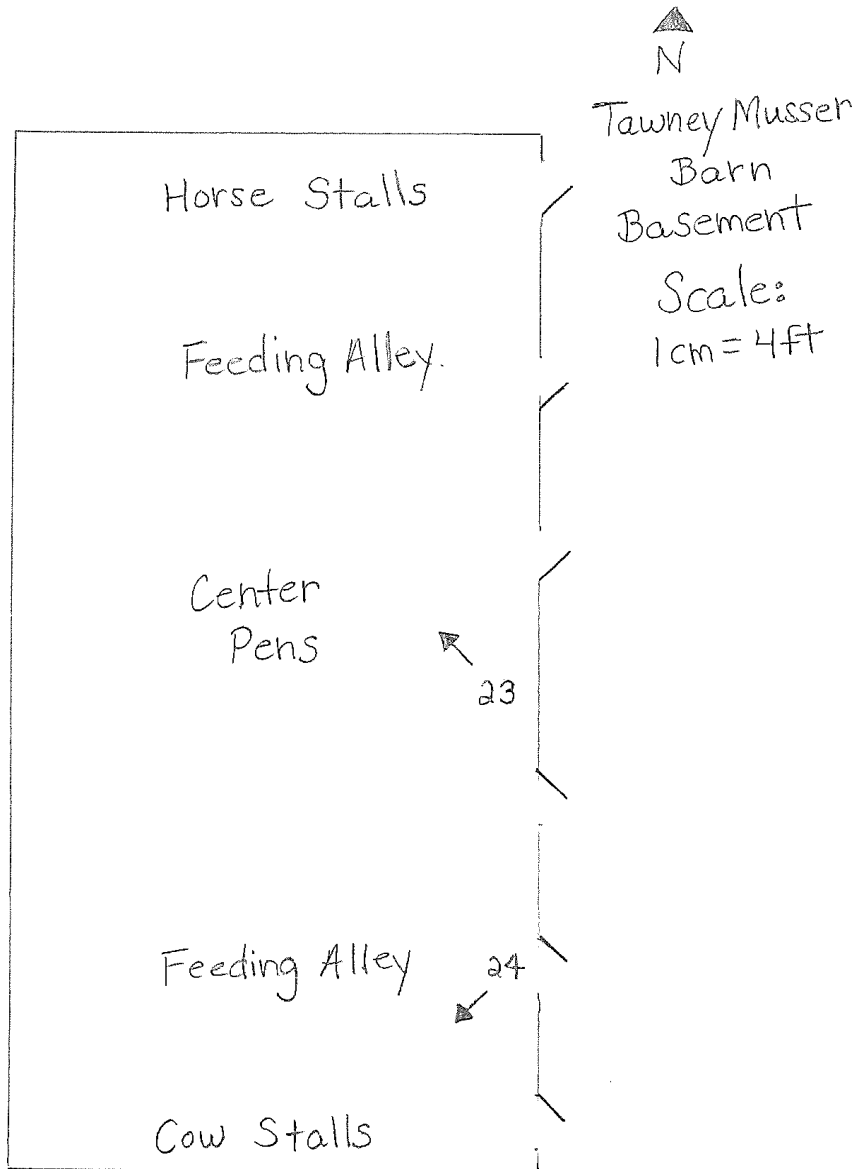 N
Tawney Musser
Barn
Basement
Scale:
1cm = 4ft
Horse Stalls
Feeding Alley.
Center
Pens
23
Feeding Alley
24
Cow Stalls